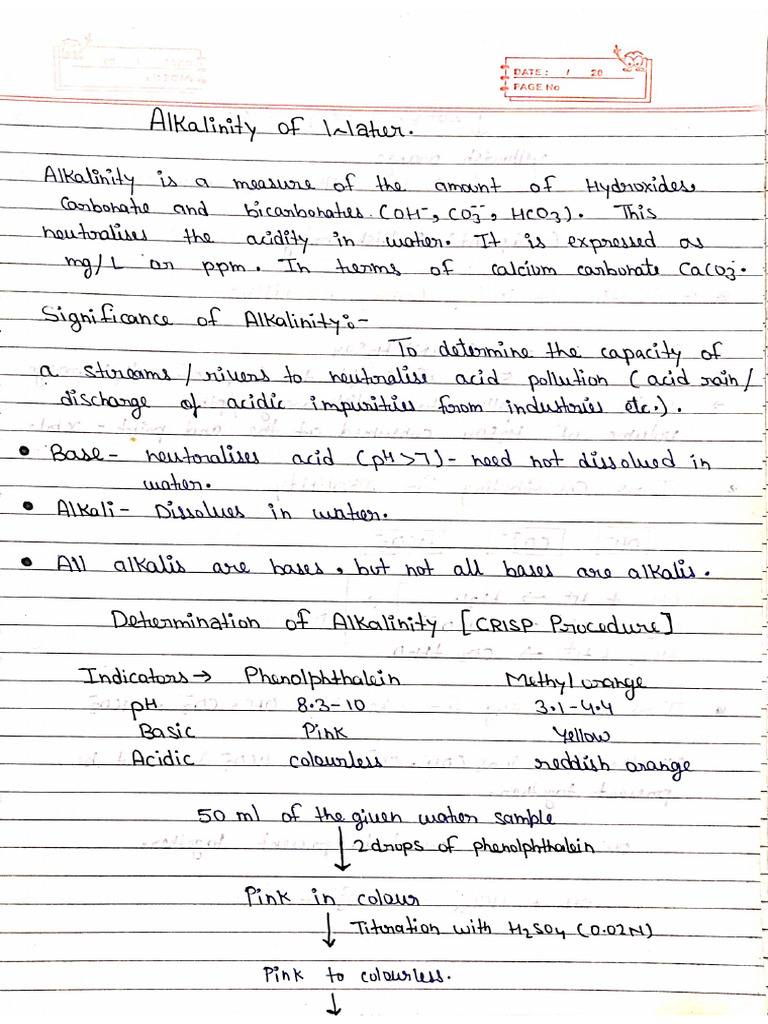 DATE: / 20
PAGE No
Alkalinity of Water.
Alkalinity is a measure of the amount of Hydroxides,
Carbonate and bicarbonates (OH⁻, CO₃⁻⁻, HCO₃). This
neutralises the acidity in water. It is expressed as
mg/L or ppm. In terms of calcium carbonate CaCO₃.
Significance of Alkalinity:-
To determine the capacity of
a streams / rivers to neutralise acid pollution (acid rain/
discharge of acidic impurities from industries etc.).
• Base - neutralises acid (pH>7) - need not dissolved in
water.
• Alkali - Dissolves in water.
• All alkalis are bases, but not all bases are alkalis.
Determination of Alkalinity [CRISP Procedure]
Indicators → Phenolphthalein Methyl orange
pH 8.3-10 3.1-4.4
Basic Pink Yellow
Acidic colourless reddish orange
50 ml of the given water sample
↓ 2 drops of phenolphthalein
Pink in colour
↓ Titration with H₂SO₄ (0.02N)
Pink to colourless.
↓